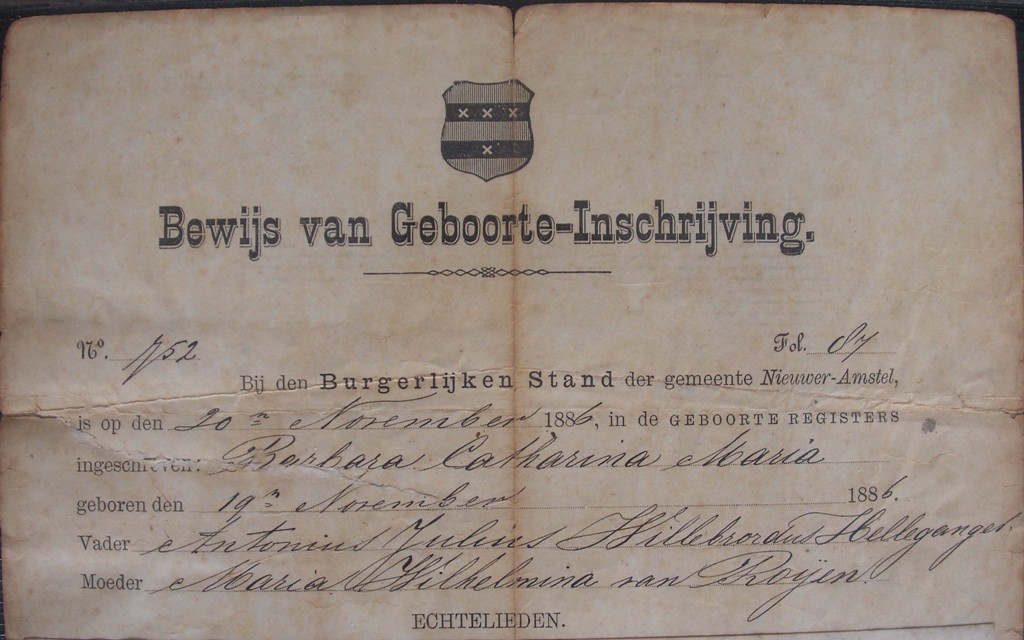 Bewijs van Geboorte-Inschrijving.
No. 752 Fol. 87
Bij den Burgerlijken Stand der gemeente Nieuwer-Amstel,
is op den 20n November 1886, in de GEBOORTE REGISTERS
ingeschreven: Barbara Catharina Maria
geboren den 19n November 1886.
Vader Antonius Julius Willebrordus
Moeder Maria Wilhelmina van Roÿen.
ECHTELIEDEN.